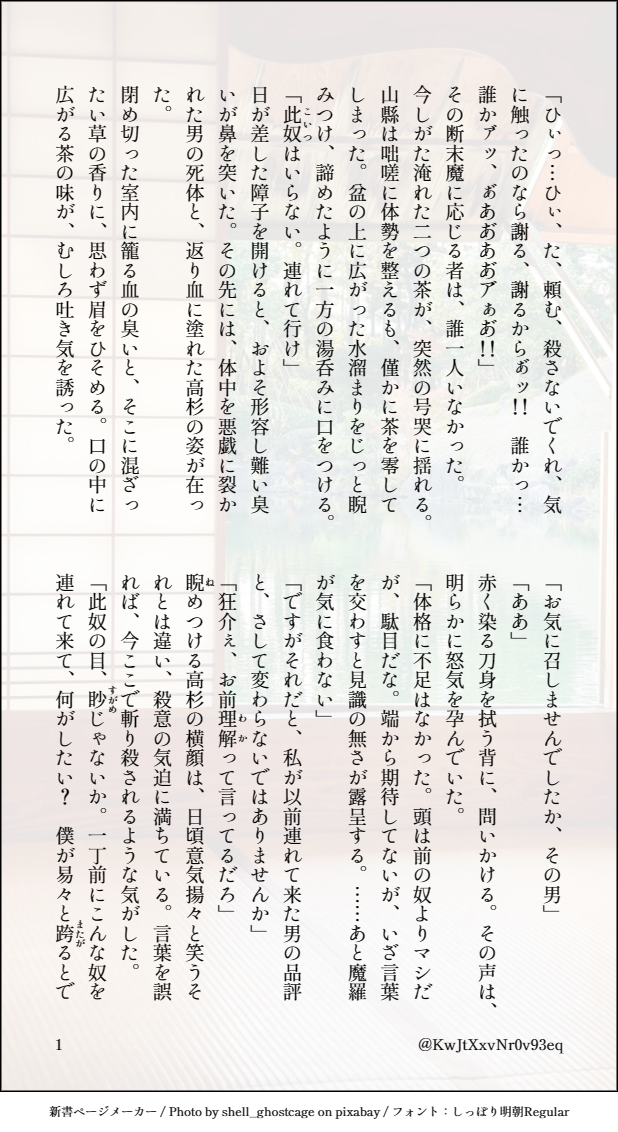 「ひぃっ…ひぃ、た、頼む、殺さないでくれ、気
に触ったのなら謝る、謝るからぁ゙ッ!!　誰かっ…
誰かァッ、ぁ゙あ゙あ゙あ゙アぁあ゙!!」
その断末魔に応じる者は、誰一人いなかった。
今しがた淹れた二つの茶が、突然の号哭に揺れる。
山縣は咄嗟に体勢を整えるも、僅かに茶を零して
しまった。盆の上に広がった水溜まりをじっと睨
みつけ、諦めたように一方の湯呑みに口をつける。
「此奴はいらない。連れて行け」
こいつ
日が差した障子を開けると、およそ形容し難い臭
いが鼻を突いた。その先には、体中を悪戯に裂か
れた男の死体と、返り血に塗れた高杉の姿が在っ
た。
閉め切った室内に籠る血の臭いと、そこに混ざっ
たい草の香りに、思わず眉をひそめる。口の中に
広がる茶の味が、むしろ吐き気を誘った。
「お気に召しませんでしたか、その男」
「ああ」
赤く染る刀身を拭う背に、問いかける。その声は、
明らかに怒気を孕んでいた。
「体格に不足はなかった。頭は前の奴よりマシだ
が、駄目だな。端から期待してないが、いざ言葉
を交わすと見識の無さが露呈する。……あと魔羅
が気に食わない」
「ですがそれだと、私が以前連れて来た男の品評
と、さして変わらないではありませんか」
「狂介ぇ、お前理解って言ってるだろ」
わか
睨めつける高杉の横顔は、日頃意気揚々と笑うそ
ね
れとは違い、殺意の気迫に満ちている。言葉を誤
れば、今ここで斬り殺されるような気がした。
「此奴の目、眇じゃないか。一丁前にこんな奴を
すがめ
連れて来て、何がしたい?　僕が易々と跨るとで
またが
1
@KwJtXxvNr0v93eq
新書ページメーカー / Photo by shell_ghostcage on pixabay / フォント：しっぽり明朝Regular